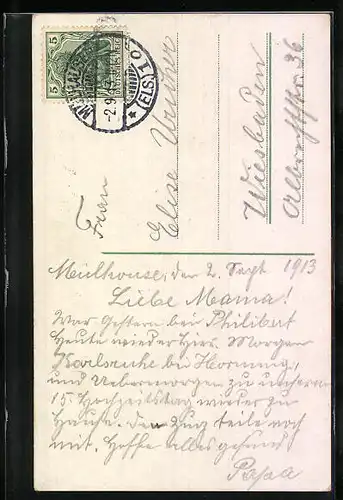 5
5
MÜLHAUSEN
-2.9.13
* (ELS) 1
DEUTSCHES REICH
Frau
Elise
Wiesbaden
Albrechtstr. 36
Mülhouse, den 2. Sept 1913
Liebe Mama!
War Gestern bei Philibert
Heute wieder hier. Morgen
Karlsruhe bei Hornung,
und Uebermorgen zu unserem
15. Hochzeitstag wieder zu
Hause. Den Zug teile noch
mit. Hoffe alles gesund
Papa